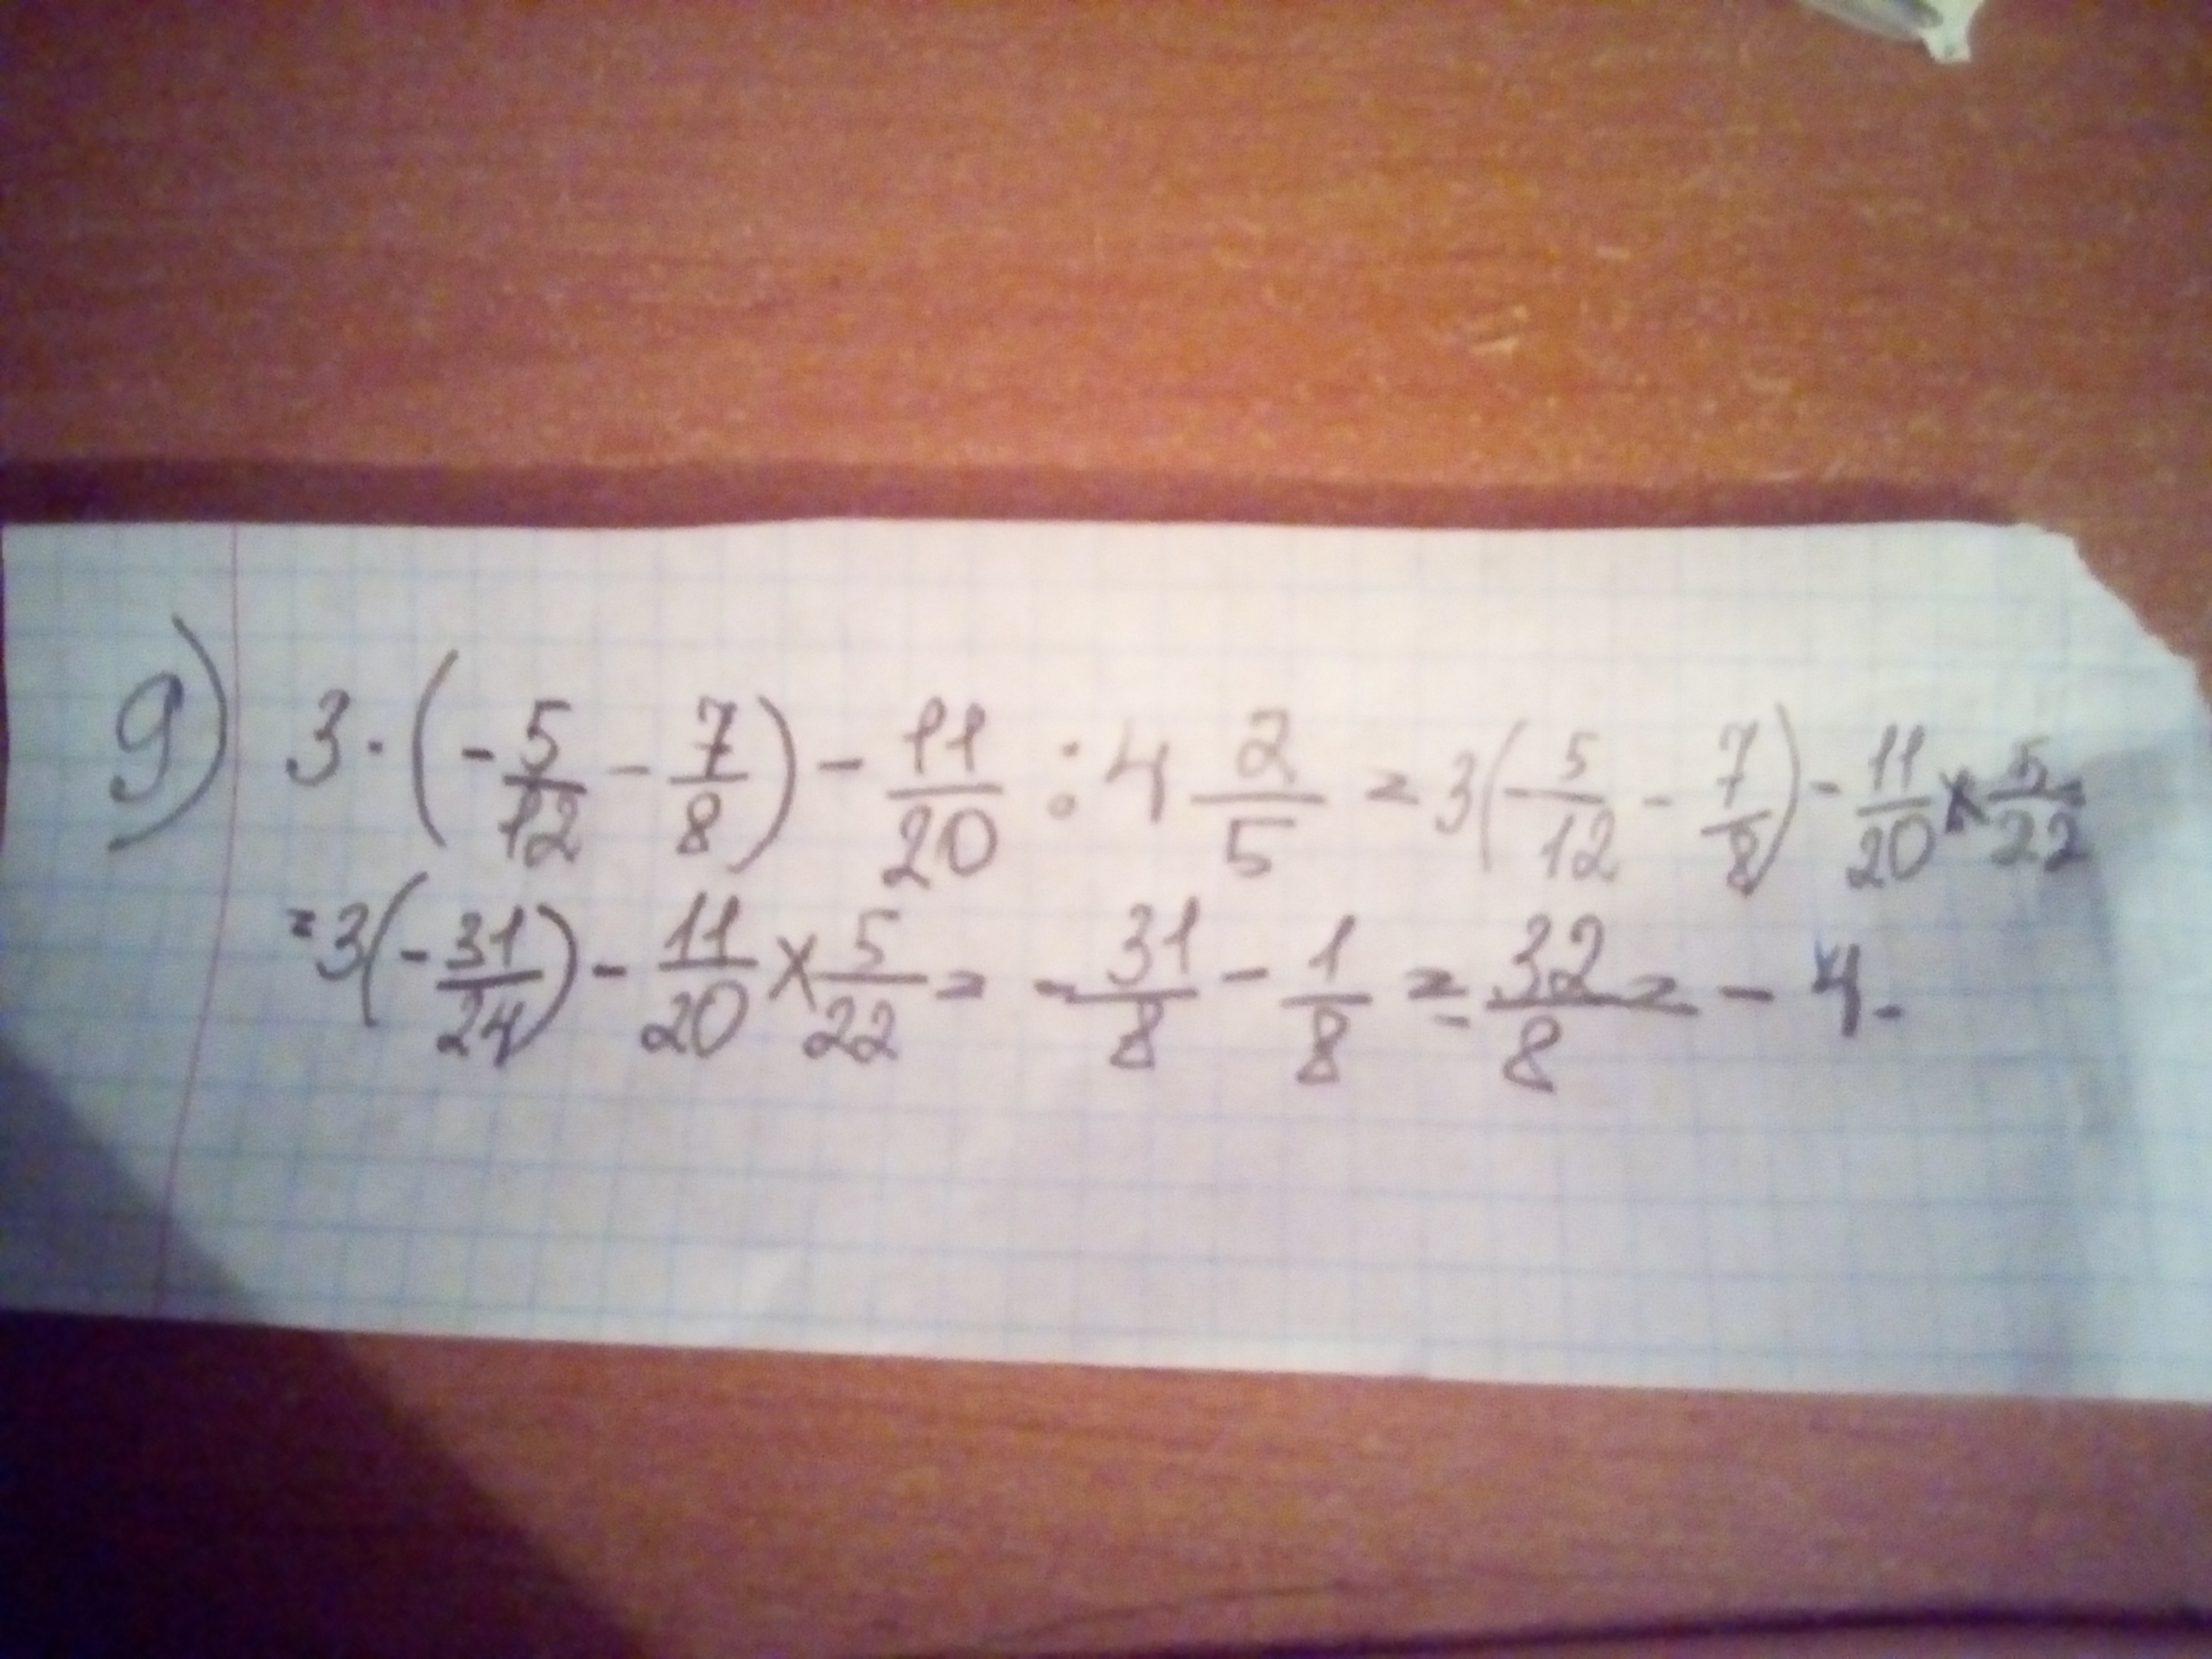 9) 3·(-5/12 - 7/8) - 11/20 : 4 2/5 = 3(-5/12 - 7/8) - 11/20 × 5/22 =
= 3(-31/24) - 11/20 × 5/22 = -31/8 - 1/8 = -32/8 = -4.